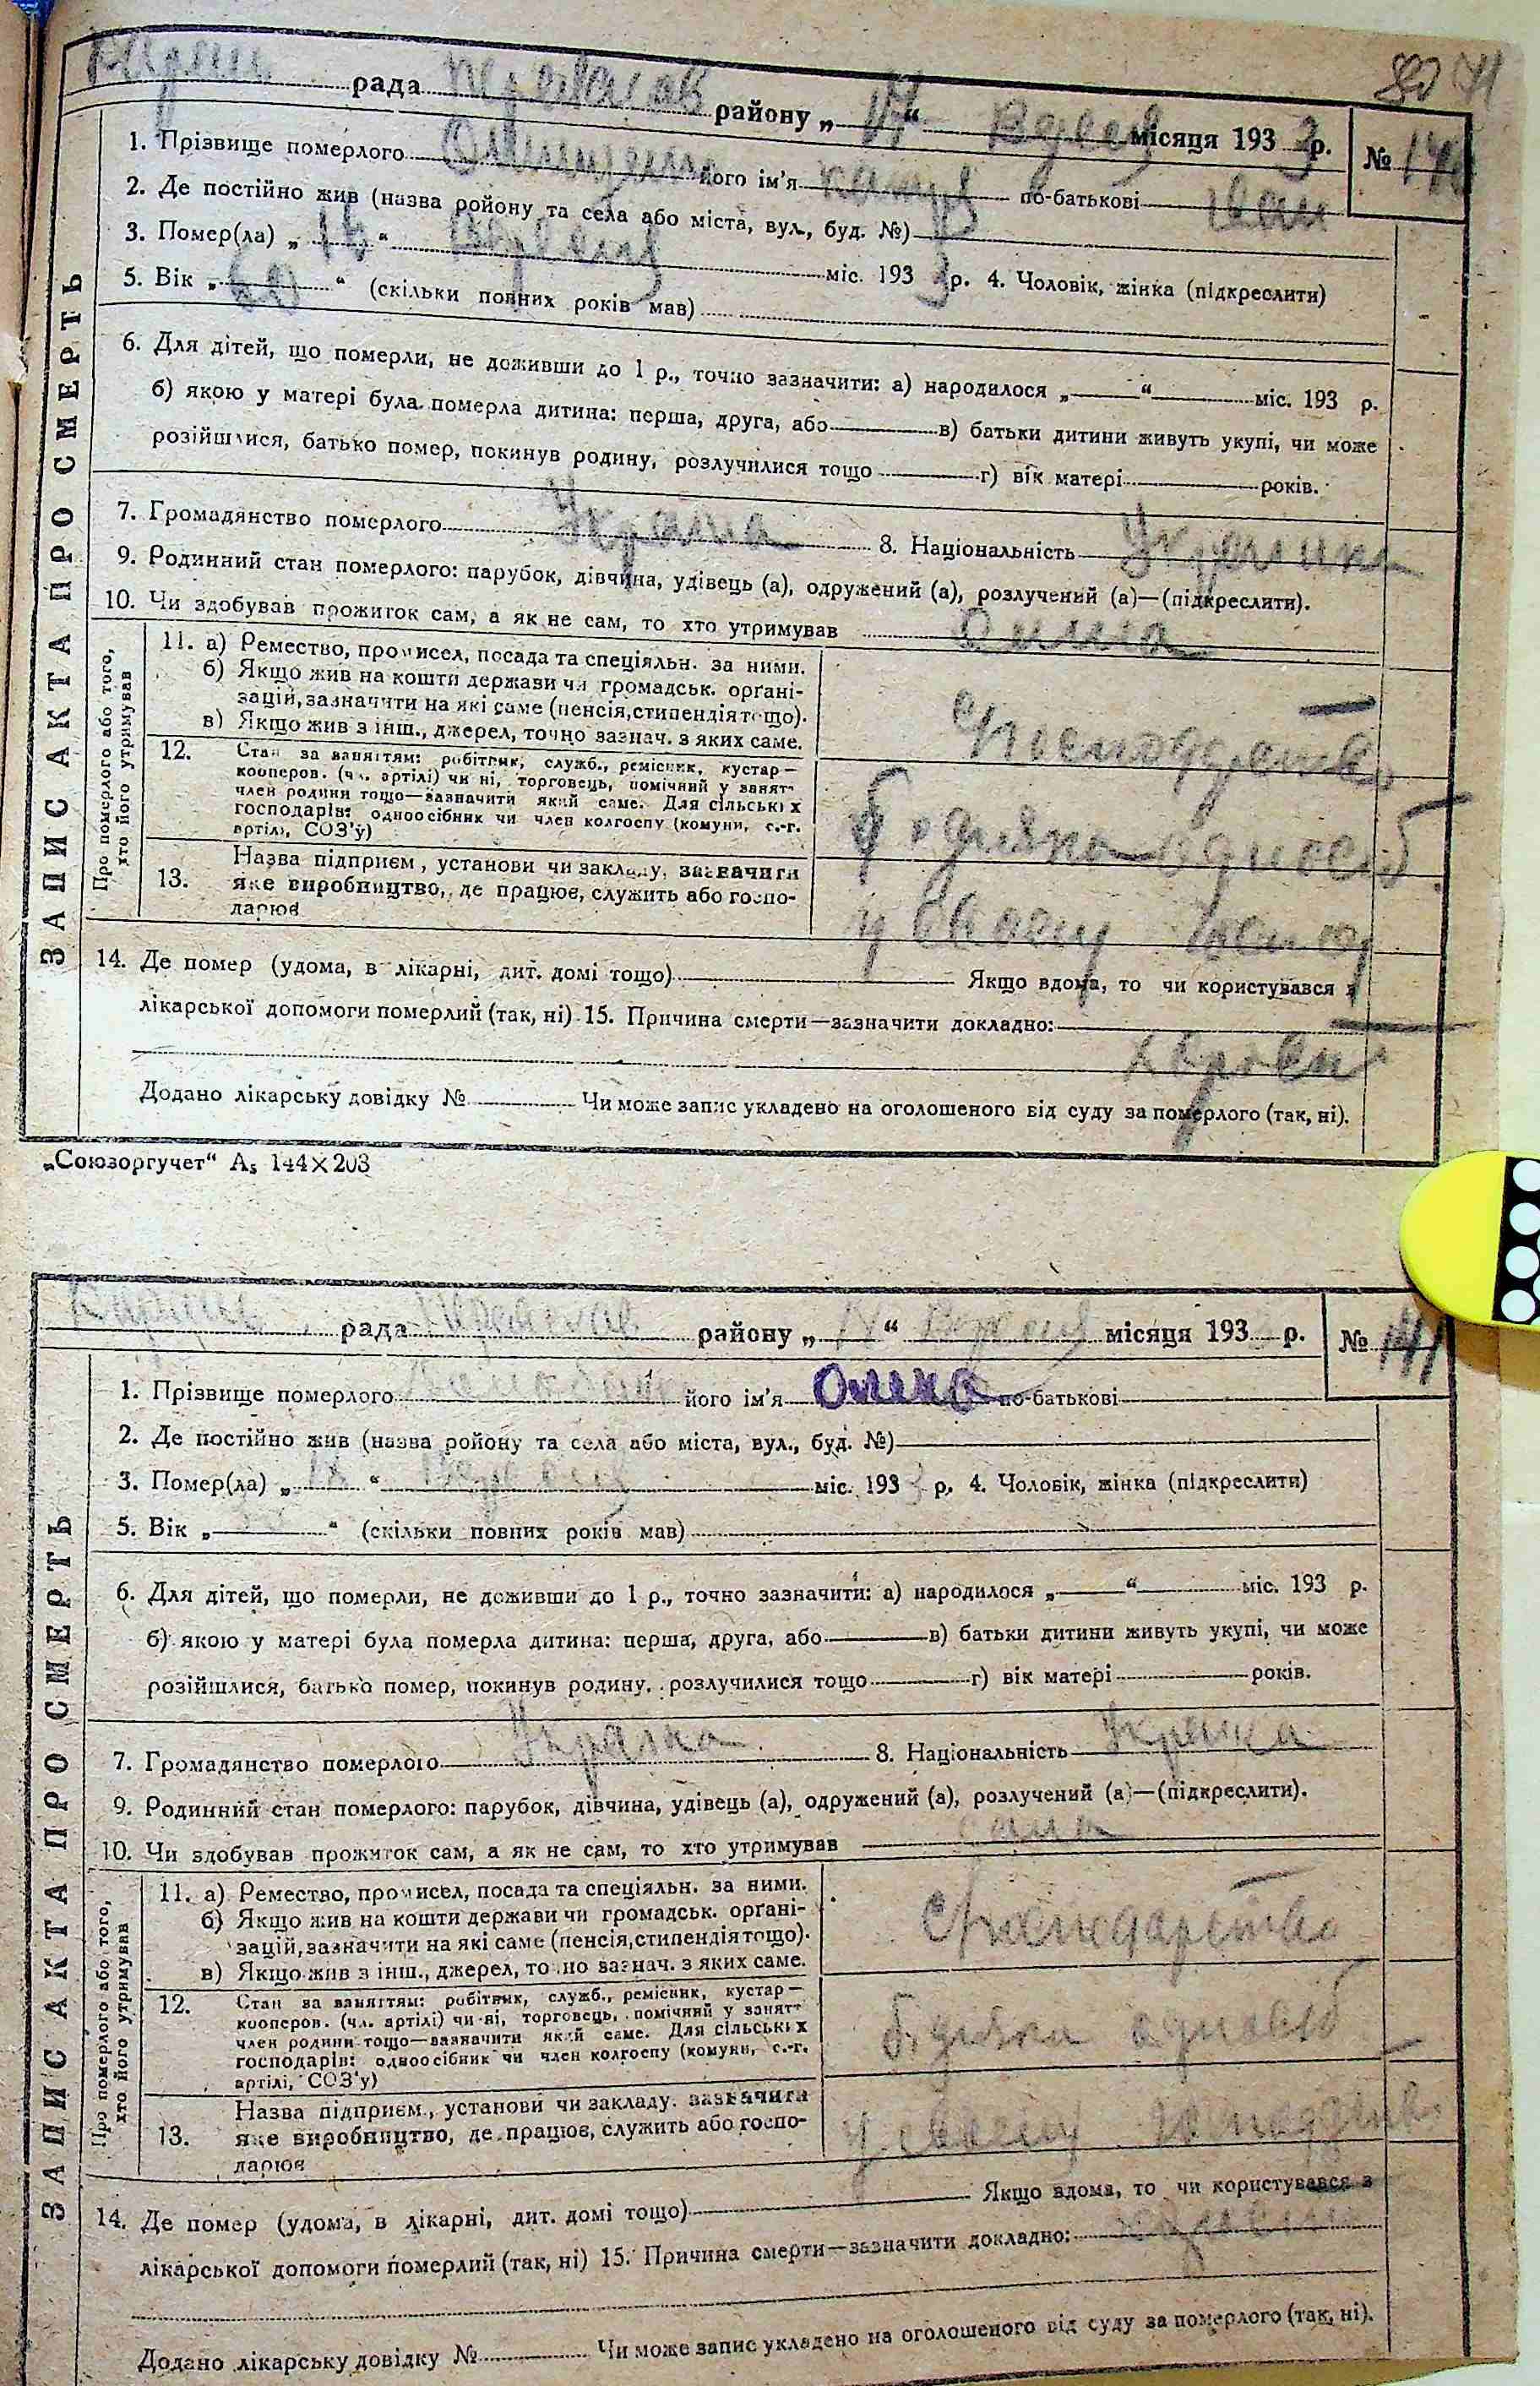 рада района „ 17 “ місяця 193 3 р. № 140
1. Прізвище померлого його ім'я по-батькові Іван
2. Де постійно жив (назва ройону та села або міста, вул., буд. №)
3. Помер(ла) „ “ міс. 193 3 р. 4. Чоловік, жінка (підкреслити)
5. Вік „ 60 “ (скільки повних років мав)
6. Для дітей, що померли, не доживши до 1 р., точно зазначити: а) народилося „ “ міс. 193 р.
б) якою у матері була померла дитина: перша, друга, або в) батьки дитини живуть укупі, чи може
розійшлися, батько помер, покинув родину, розлучилися тощо г) вік матері років.
7. Громадянство померлого Україна 8. Національність
9. Родинний стан померлого: парубок, дівчина, удівець (а), одружений (а), розлучений (а)—(підкреслити).
10. Чи здобував прожиток сам, а як не сам, то хто утримував
ЗАПИС АКТА ПРО СМЕРТЬ
Про померлого або того,
хто його утримував
11. а) Ремество, промисел, посада та спеціяльн. за ними.
б) Якщо жив на кошти держави чи громадськ. орґані-
зацій, зазначити на які саме (пенсія, стипендія тощо).
в) Якщо жив з інш., джерел, точно зазнач. з яких саме.
12. Стан за заняттям: робітник, служб., ремісник, кустар—
кооперов. (чл. артілі) чи ні, торговець, помічний у занят
член родини тощо—зазначити який саме. Для сільських
господарів: одноосібник чи член колгоспу (комуни, с.-г.
артілі, СОЗ'у)
бідняк одноосіб
13. Назва підприєм., установи чи закладу, зазначити
яке виробництво, де працює, служить або госпо-
дарює
у своєму
14. Де помер (удома, в лікарні, дит. домі тощо) Якщо вдома, то чи користувався з
лікарської допомоги померлий (так, ні) 15. Причина смерти—зазначити докладно:
Додано лікарську довідку № Чи може запис укладено на оголошеного від суду за померлого (так, ні).
„Союзоргучет“ А₅ 144×203
рада району „ “ місяця 193 р. № 141
1. Прізвище померлого його ім'я по-батькові
2. Де постійно жив (назва ройону та села або міста, вул., буд. №)
3. Помер(ла) „ “ міс. 193 3 р. 4. Чоловік, жінка (підкреслити)
5. Вік „ “ (скільки повних років мав)
6. Для дітей, що померли, не доживши до 1 р., точно зазначити: а) народилося „ “ міс. 193 р.
б) якою у матері була померла дитина: перша, друга, або в) батьки дитини живуть укупі, чи може
розійшлися, батько помер, покинув родину, розлучилися тощо г) вік матері років.
7. Громадянство померлого 8. Національність
9. Родинний стан померлого: парубок, дівчина, удівець (а), одружений (а), розлучений (а)—(підкреслити).
10. Чи здобував прожиток сам, а як не сам, то хто утримував сама
ЗАПИС АКТА ПРО СМЕРТЬ
Про померлого або того,
хто його утримував
11. а) Ремество, промисел, посада та спеціяльн. за ними.
б) Якщо жив на кошти держави чи громадськ. орґані-
зацій, зазначити на які саме (пенсія, стипендія тощо).
в) Якщо жив з інш., джерел, точно зазнач. з яких саме.
12. Стан за заняттям: робітник, служб., ремісник, кустар—
кооперов. (чл. артілі) чи ні, торговець, помічний у занят
член родини тощо—зазначити який саме. Для сільських
господарів: одноосібник чи член колгоспу (комуни, с.-г.
артілі, СОЗ'у)
бідячка одноосіб
13. Назва підприєм., установи чи закладу, зазначити
яке виробництво, де працює, служить або госпо-
дарює
у своєму
14. Де помер (удома, в лікарні, дит. домі тощо) Якщо вдома, то чи користувався з
лікарської допомоги померлий (так, ні) 15. Причина смерти—зазначити докладно:
Додано лікарську довідку № Чи може запис укладено на оголошеного від суду за померлого (так, ні).